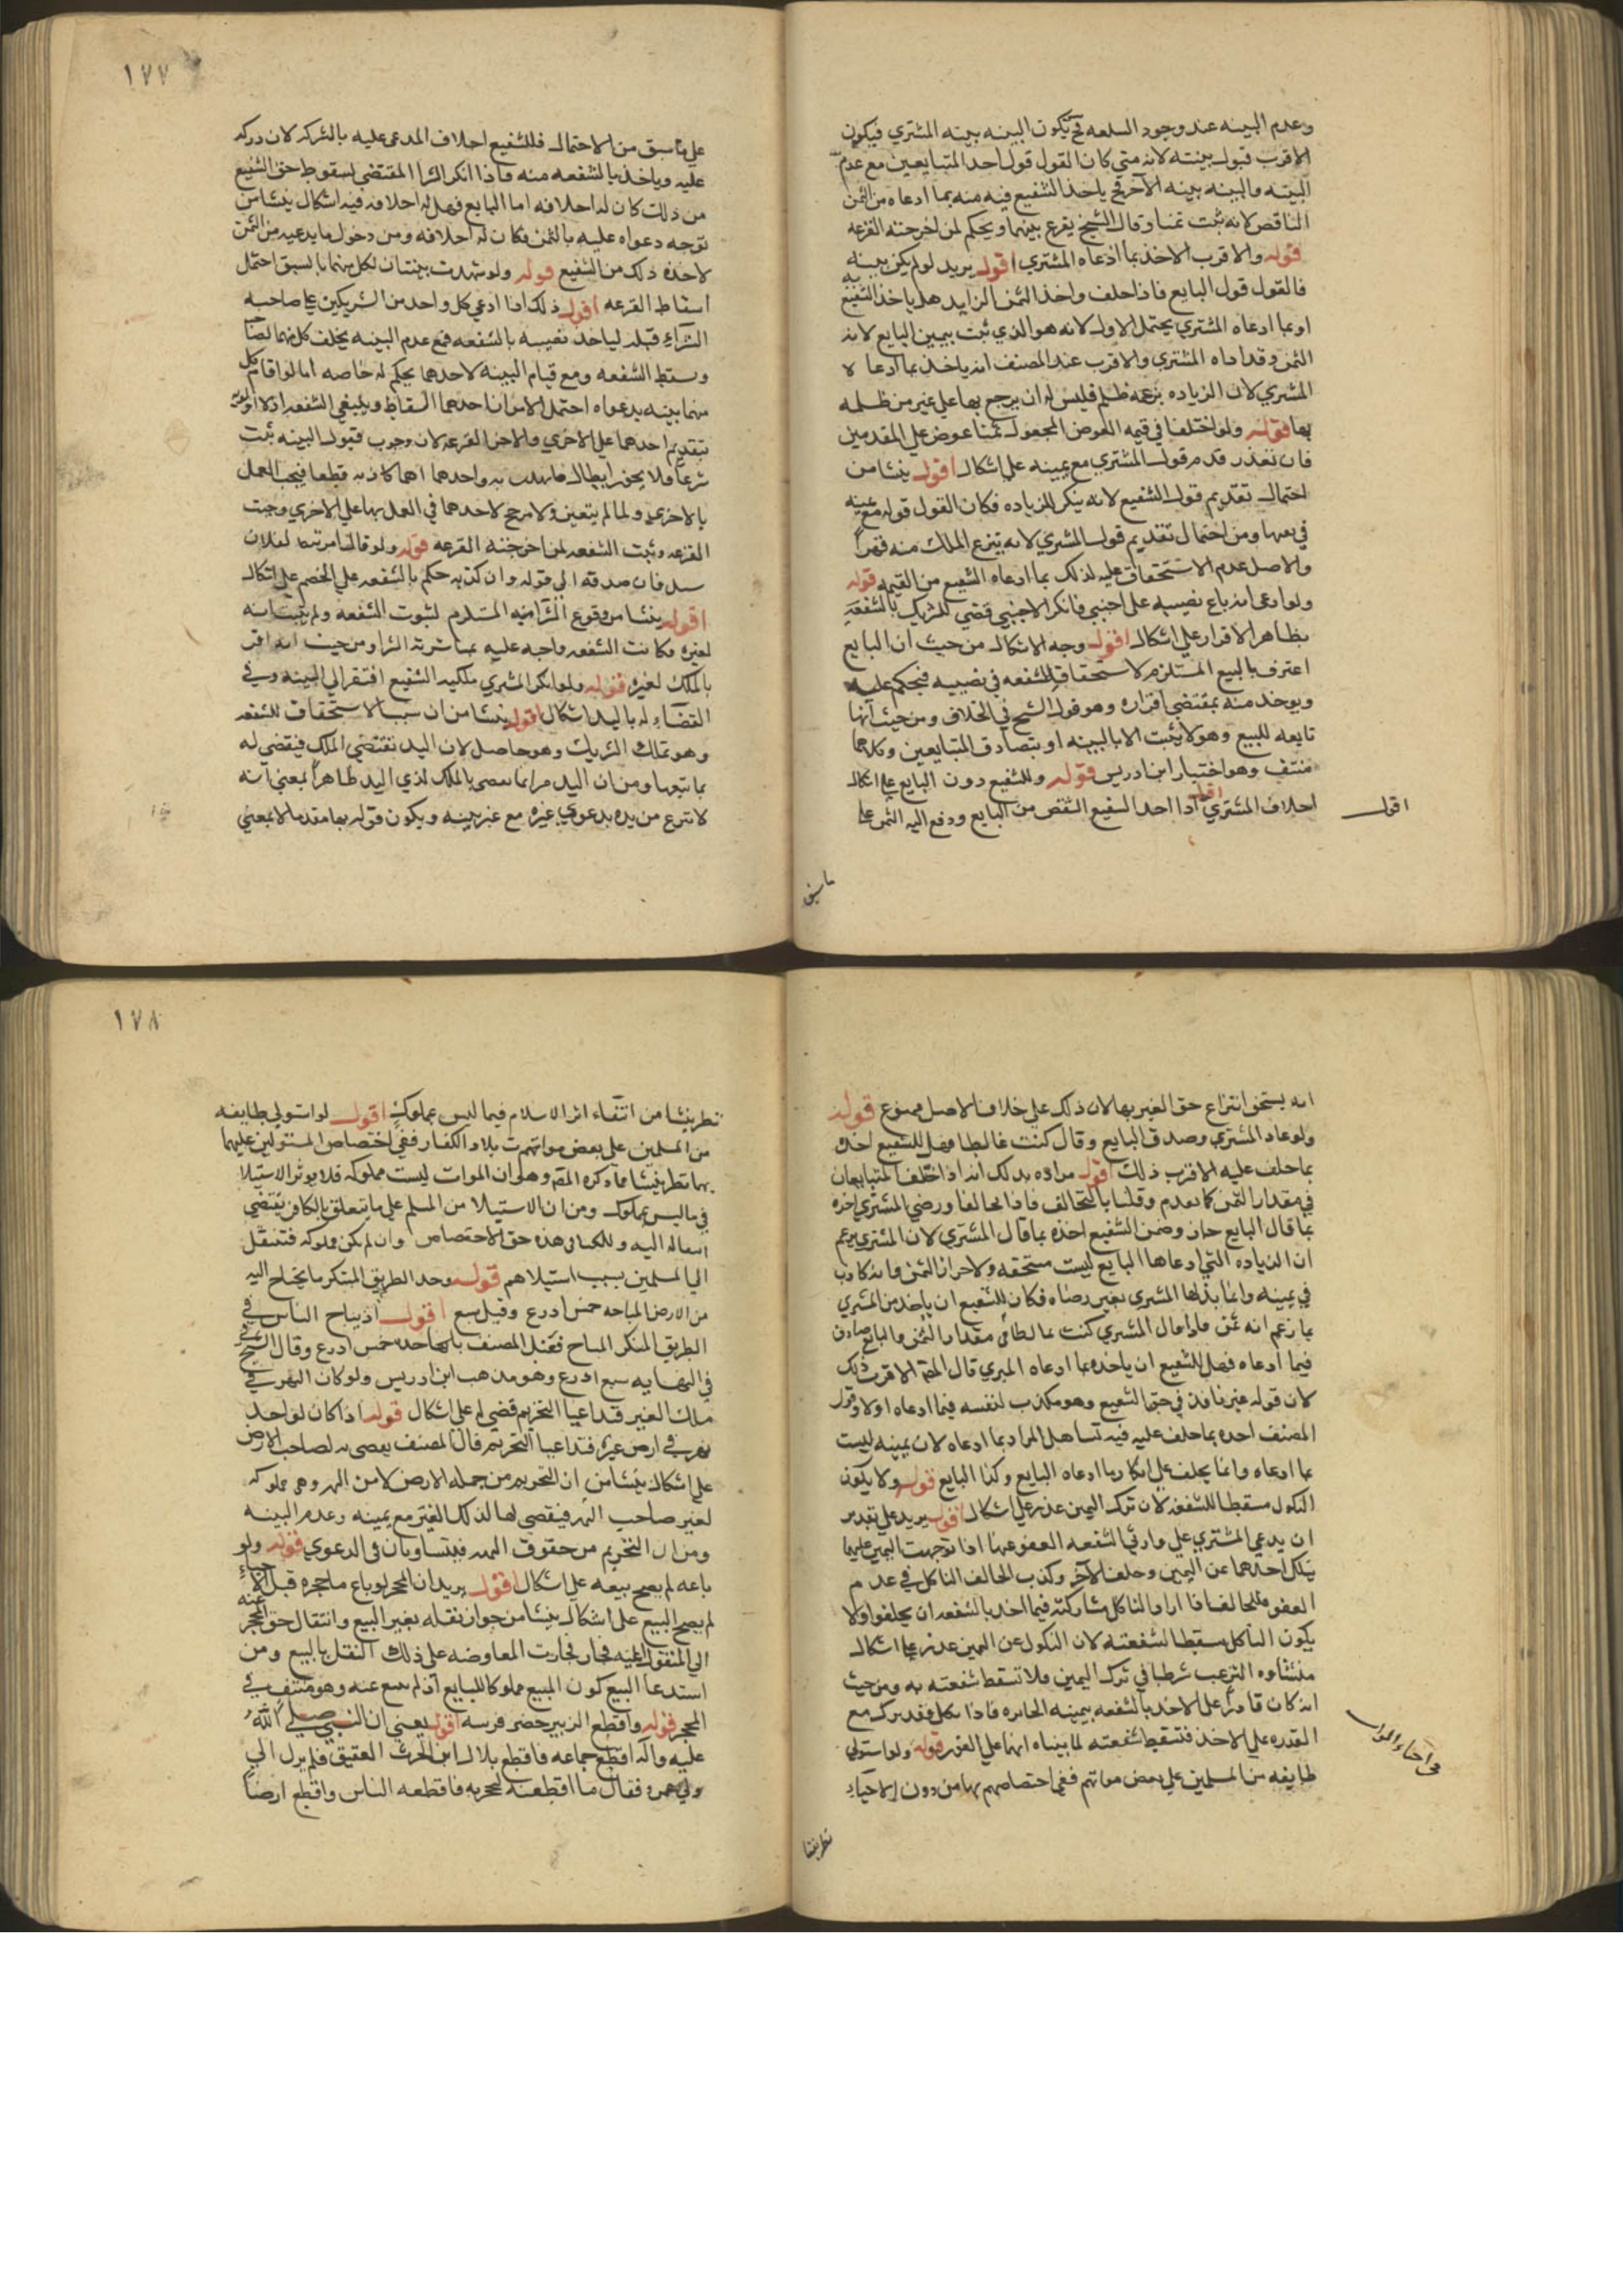 وعدم البينه عند وجود السلعه تح تكون البينه بينه المشتري فيكون
الاقرب قبول بينته لانه متي كان القول قول احد المتبايعين مع عدم
البينه والبينه بينه الآخر فح ياخذ الشفيع فيه منه بما ادعاه من الثمن
الناقص لانه ثبت ثمنا وقال الشيخ يقرع بينهما ويحكم لمن اخرجته القرعه
قوله والاقرب الاخذ بما ادعاه المشتري اقول يريد لو لم يكن بينه
فالقول قول البايع فاذا حلف واخذ الثمن الزايد هل ياخذ الشفيع به
او بما ادعاه المشتري يحتمل الاول لانه هو الذي ثبت بيمين البايع لانه
الثمن وقد اداه المشتري والاقرب عند المصنف انه ياخذ بما ادعا لا
المشتري لان الزياده بزعمه ظلم فليس له ان يرجع بها علي غير من ظلمه
بها قوله ولو اختلفا في قيمه العوض المجعول ثمنا عرض علي المقدمين
فان تعذر قدم قول المشتري مع يمينه علي اشكال اقول ينشا من
احتمال تقديم قول الشفيع لانه ينكر الزياده فكان القول قوله مع يمينه
في نعيها ومن احتمال تقديم قول المشتري لانه ينزع الملك منه قهرا
والاصل عدم الاستحقاق عليه لذلك بما ادعاه الشفيع من القيمه قوله
ولو ادعي انه باع نصيبه علي اجنبي فانكر الاجنبي قضي للشريك بالشفعه
بظاهر الاقرار علي اشكال اقول وجه الاشكال من حيث ان البايع
اعترف بالبيع المستلزم لاستحقاق الشفعه في نصيبه فيحكم عليه
ويوخذ منه بمقتضي اقراره وهو قول الشيخ في الخلاف ومن حيث انها
تابعه للبيع وهو لا يثبت الا بالبينه او بتصادق المتبايعين وكلاهما
منتف وهو اختيار ابن ادريس قوله وللشفيع دون البايع علي اشكال
احلاف المشتري اقول اذا اخذ الشفيع الشقص من البايع ودفع اليه الثمن علي
اقول
ما سبق
١٧٧
علي ما سبق من الاحتمال فللشفيع احلاف المدعي عليه بالشركه لان دركه
عليه وياخذ بالشفعه منه فاذا انكر الشرا المقتضي لسقوط حق الشفيع
من ذلك كان له احلافه اما البايع فهل له احلافه فيه اشكال ينشا من
توجه دعواه عليه بالثمن فكان له احلافه ومن دخول ما يدعيه من الثمن
لاخذه ذلك من الشفيع قوله ولو شهدت بينتان لكل منهما بالسبق احتمل
اسقاط القرعه اقول ذلك اذا ادعي كل واحد من الشريكين علي صاحبه
الشراء قبله لياخذ نصيبه بالشفعه فمع عدم البينه يحلف كل منهما لصاحبه
وسقط الشفعه ومع قيام البينه لاحدهما يحكم له خاصه اما لو اقام كل
منهما بينه بدعواه احتمل الامران احدهما السقاط وينبغي الشفعه اذ لا اولويه
بتقديم احدهما علي الاخري والاخر القرعه لان وجوب قبول البينه ثبت
شرعا فلا يجوز ابطال ما شهدت به واحدهما كاذبه قطعا فيجب العمل
بالاخري ولما لم يتعين ولا مرجح لاحدهما في العمل بها علي الاخري وجبت
القرعه وثبت الشفعه لمن اخرجته القرعه قوله ولو قال اشتريته لفلان
سئل فان صدقه الي قوله وان كذبه حكم بالشفعه علي الخصم علي اشكال
اقول ينشا من وقوع الشرا منه المستلزم لثبوت الشفعه ولم يثبت انه
لغيره فكانت الشفعه واجبه عليه بمباشرته الشرا ومن حيث انه اقر
بالملك لغيره قوله ولو انكر المشتري ملكيه الشفيع افتقر الي البينه وفي
القضاء له باليد اشكال اقول ينشا من ان سبب الاستحقاق للشفعه
وهو تملك الشريك وهو حاصل لان اليد تقتضي الملك فيقضي له
بما تبعها ومن ان اليد مراتها تقضي بالملك لذي اليد ظاهرا بمعني انه
لا تنزع من يده بدعوي غيره مع غير بينه ويكون قوله بها مقدما لا بمعني
انه يستحق انتزاع حق الغير بها لان ذلك علي خلاف الاصل ممنوع قوله
ولو عاد المشتري وصدق البايع وقال كنت غالطا فهل للشفيع اخذه
بما حلف عليه الاقرب ذلك اقول مراده بذلك انه اذا اختلف المتبايعان
في مقدار الثمن كما تقدم وقلنا بالتحالف فاذا تحالفا ورضي المشتري اخذه
بما قال البايع جاز وضمن الشفيع اخذه بما قال المشتري لان المشتري يزعم
ان الزياده التي ادعاها البايع ليست مستحقه ولا جزا من الثمن وانه كاذب
في يمينه وانما بذلها المشتري بغير رضاه فكان للشفيع ان ياخذ من المشتري
بما زعم انه ثمن فاذا قال المشتري كنت غالطا في مقدار الثمن والبايع صادق
فيما ادعاه فهل للشفيع ان ياخذه بما ادعاه المشتري قال المص الاقرب ذلك
لان قوله غير نافذ في حق الشفيع وهو مكذب لنفسه فيما ادعاه اولا وقول
المصنف اخذه بما حلف عليه فيه تساهل المراد بما ادعاه لان يمينه ليست
بما ادعاه وانما يحلف علي انكار ما ادعاه البايع وكذا البايع قوله ولا يكون
النكول مسقطا للشفعه لان ترك اليمين عذر علي اشكال اقول يريد علي تقدير
ان يدعي المشتري علي وارثي الشفعه العفو عنها اذا توجهت اليمين عليهما
نكل احدهما عن اليمين وحلف الآخر وكذب الحالف الناكل في عدم
العفو فتحالفا فاذا اراد الناكل مشاركته فيما اخذ بالشفعه ان يحلف اولا
يكون الناكل مسقطا لشفعته لان النكول عن اليمين عذر علي اشكال
منشاوه الترغيب شرعا في ترك اليمين فلا تسقط شفعته به ومن حيث
انه كان قادرا علي الاخذ بالشفعه بيمينه الجايزه فاذا نكل فقد ترك مع
القدره علي الاخذ فتسقط شفعته لما بيناه انها علي الفور قوله ولو استولي
طايفه من المسلمين علي بعض مواتهم ففي اختصاصهم بها من دون الاحياء
في احياء الموات
نظر ينشا
١٧٨
نظر ينشا من انتفاء اثر الاسلام فيما ليس بمملوك اقول لو استولي طايفه
من المسلمين علي بعض مواتهم من بلاد الكفار ففي اختصاص المستولين عليها
بها نظر ينشا مما ذكره المص وهو ان الموات ليست مملوكه فلا يوثر الاستيلا
في ما ليس بمملوك ومن ان الاستيلا من المسلم علي ما يتعلق بالكافر يقتضي
انتقاله اليه وللكفار في هذه حق الاختصاص وان لم تكن مملوكه فتنتقل
الي المسلمين بسبب استيلاهم قوله وحد الطريق المبتكر ما يحتاج اليه
من الارض المباحه خمس اذرع وقيل سبع اقول اذ يباح الناس في
الطريق المبتكر المباح فعند المصنف بانها حده خمس اذرع وقال الشيخ
في النهايه سبع اذرع وهو مذهب ابن ادريس ولو كان النهر في
ملك الغير فتداعيا الحريم قضي له علي اشكال قوله اذا كان لواحد
نهر في ارض غيره فتداعيا الحريم قال المصنف يقضي به لصاحب الارض
علي اشكال ينشا من ان الحريم من جمله الارض لا من النهر وهي مملوكه
لغير صاحب النهر فيقضي بها لذلك الغير مع يمينه وعدم البينه
ومن ان الحريم من حقوق النهر فيتساويان في الدعوي قوله ولو
باعه لم يصح بيعه علي اشكال اقول يريد ان المحجر لو باع ما حجره قبل الاحياء
لم يصح البيع علي اشكال ينشا من جواز نقله بغير البيع وانتقال حق المحجر عنه
الي المنقول اليه فجاز المعاوضه علي ذلك النقل بالبيع ومن
استدعا البيع كون المبيع مملوكا للبايع اذ لم يمنع عنه وهو منتف في
المحجر قوله واقطع الزبير حضر فرسه اقول يعني ان النبي صلي الله
عليه وآله اقطع جماعه فاقطع بلال ابن الحرث العقيق فلم يزل الي
ولي عمر فقال ما اقطعته لتحجره فاقطعه الناس واقطع ارضا